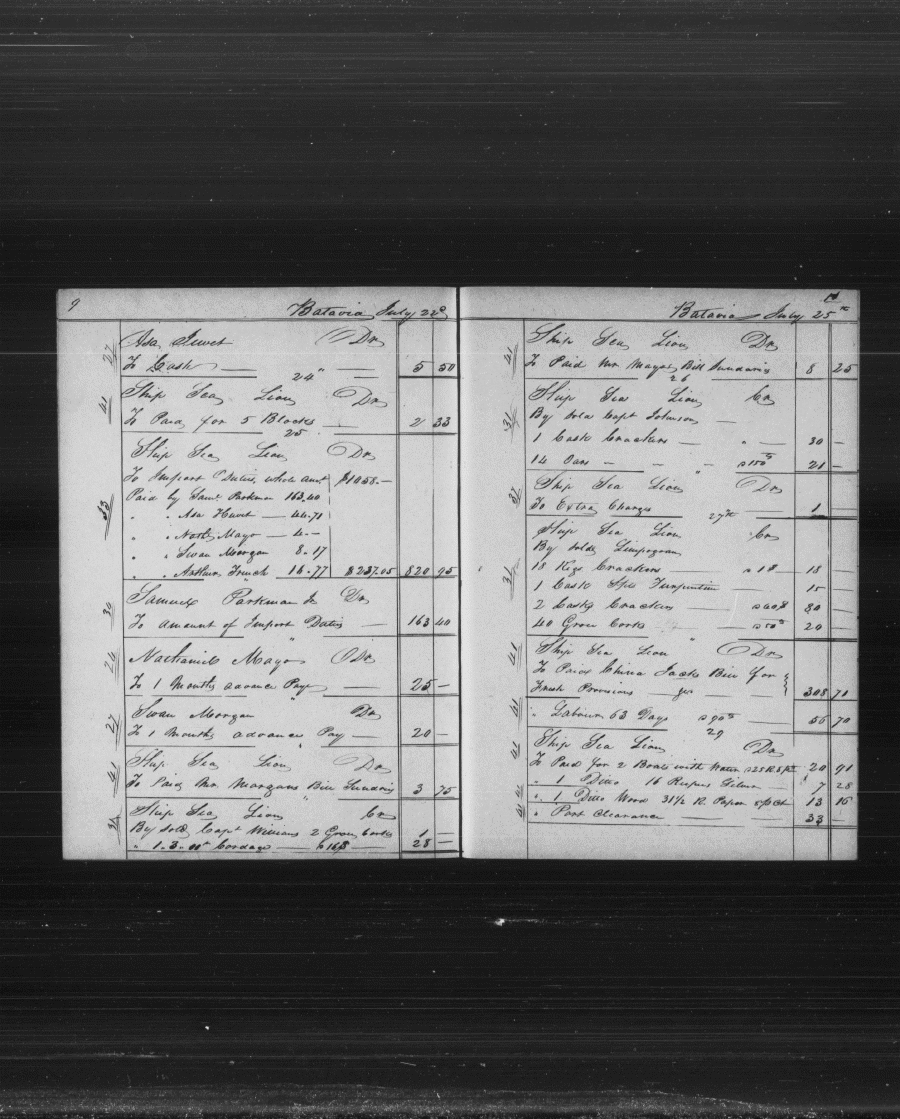 9
Batavia July 22d
27 Asa Dr
To Cash 5 50
24"
41 Ship Sea Lion Dr
To Paid for 5 Blocks 2 33
25
33 Ship Sea Lion Dr
To Import Duties, whole amt $1058.—
Paid by Saml. Parkman 163.40
" " Asa 44.71
" " Nathl Mayo — 4.—
" " Swan Morgan 8.17
" " Arthur French 14.77 $237.05 820 95
30 Samuel Parkman Jr Dr
To Amount of Import Duties — 163 40
"
24 Nathaniel Mayo Dr
To 1 Months advance Pay — 25 —
27 Swan Morgan Dr
To 1 Months advance Pay — 20 —
"
41 Ship Sea Lion Dr
To Paid Mr Morgans Bill Sundries 3 75
"
Ship Sea Lion Cr
By Sold Capt Williams 2 Gross Corks 1 —
" Cordage — 28 —
Batavia July 25th
41 Ship Sea Lion Dr
To Paid Mr Mayos Bill Sundries 8 25
26
31 Ship Sea Lion Cr
By Sold Capt Johnson —
1 Cask Crackers — " — 30 —
14 Oars — — — a 150c 21 —
"
37 Ship Sea Lion Dr
To Extra Charges 1 —
27th
31 Ship Sea Lion Cr
By Sold
18 Kegs Crackers a 1$ 18 —
1 Cask Turpentine 15 —
2 Casks Crackers 30 —
40 Gross Corks a 50c 20 —
"
41 Ship Sea Lion Dr
To Paid China Jacks Bill for
Fresh Provisions 308 71
41 " Labour 63 Days a 90c 56 70
29
41 Ship Sea Lion Dr
To Paid for 2 Boats with Water 20 91
" 1 Ditto 16 Rupees 7 28
41 " 1 Ditto Wood 31½ R. Paper 13 16
41 " Port Clearance — — 33 —